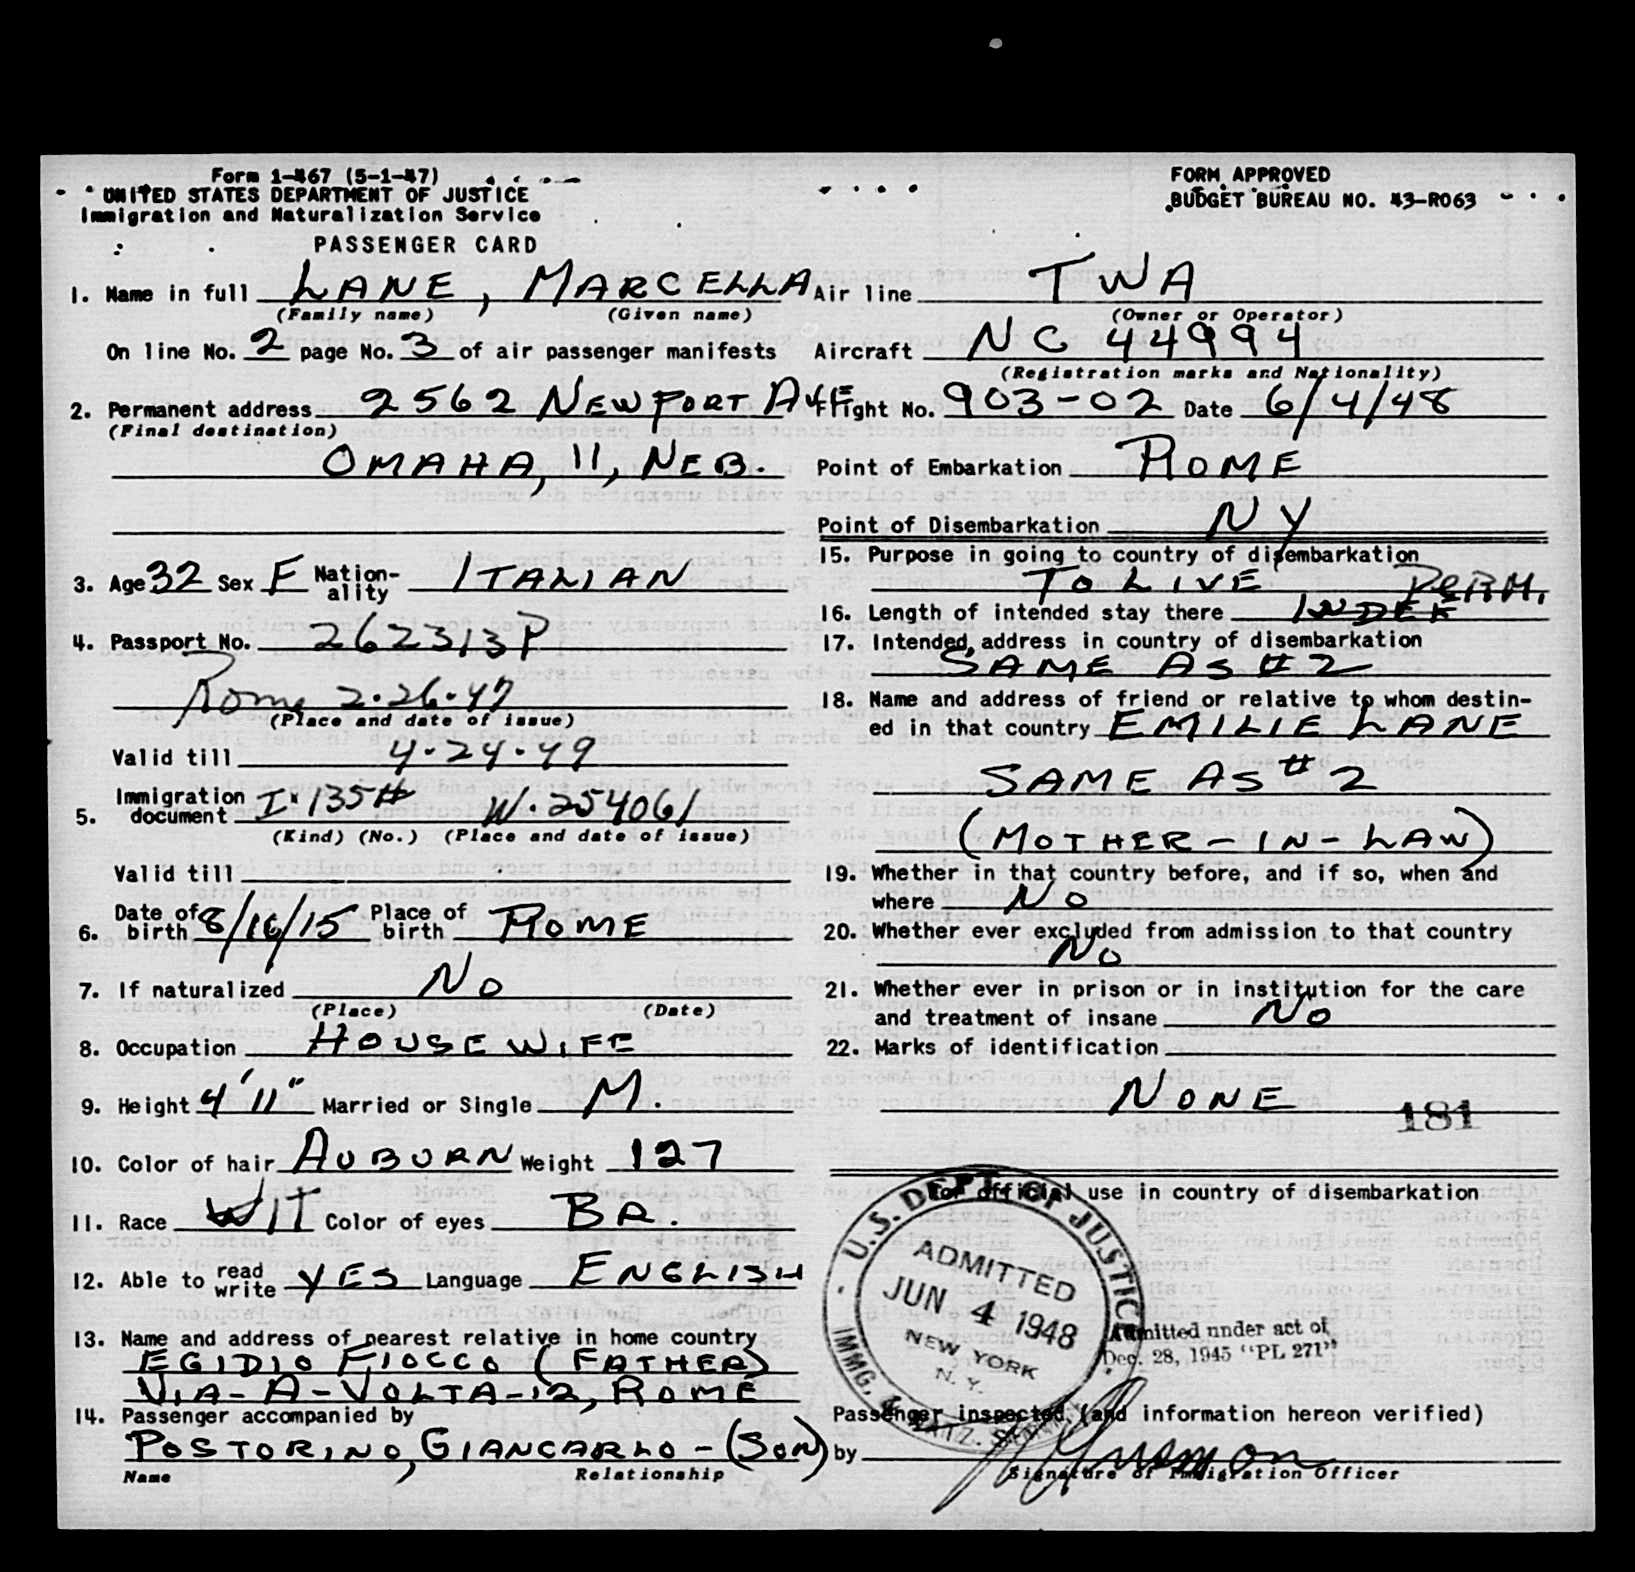 Form 1-467 (5-1-47)
UNITED STATES DEPARTMENT OF JUSTICE
Immigration and Naturalization Service
PASSENGER CARD
FORM APPROVED
BUDGET BUREAU NO. 43-R063
1. Name in full LANE, MARCELLA
(Family name) (Given name)
On line No. 2 page No. 3 of air passenger manifests
2. Permanent address 2562 NEWPORT AVE
(Final destination)
OMAHA, 11, NEB.
3. Age 32 Sex F Nation-ality ITALIAN
4. Passport No. 262313P
Rome 2.26.47
(Place and date of issue)
Valid till 4.24.49
5. Immigration document I 135# W. 254061
(Kind) (No.) (Place and date of issue)
Valid till
6. Date of birth 8/16/15 Place of birth ROME
7. If naturalized NO
(Place) (Date)
8. Occupation HOUSEWIFE
9. Height 4'11" Married or Single M.
10. Color of hair AUBURN Weight 127
11. Race WIT Color of eyes BR.
12. Able to read write YES Language ENGLISH
13. Name and address of nearest relative in home country
EGIDIO FIOCCO (FATHER)
VIA-A-VOLTA-12, ROME
14. Passenger accompanied by
POSTORINO, GIANCARLO - (SON)
Name Relationship
Air line TWA
(Owner or Operator)
Aircraft NC 44994
(Registration marks and Nationality)
Flight No. 903-02 Date 6/4/48
Point of Embarkation ROME
Point of Disembarkation NY
15. Purpose in going to country of disembarkation
TO LIVE PERM.
16. Length of intended stay there INDEF
17. Intended address in country of disembarkation
SAME AS #2
18. Name and address of friend or relative to whom destin-
ed in that country EMILIE LANE
SAME AS #2
(MOTHER-IN-LAW)
19. Whether in that country before, and if so, when and
where NO
20. Whether ever excluded from admission to that country
NO
21. Whether ever in prison or in institution for the care
and treatment of insane NO
22. Marks of identification
NONE
181
For official use in country of disembarkation
U.S. DEPT. OF JUSTICE
ADMITTED
JUN 4 1948
NEW YORK
N. Y.
IMMG. & NATZ. SERVICE
Admitted under act of
Dec. 28, 1945 "PL 271"
Passenger inspected (and information hereon verified)
by
Signature of Immigration Officer